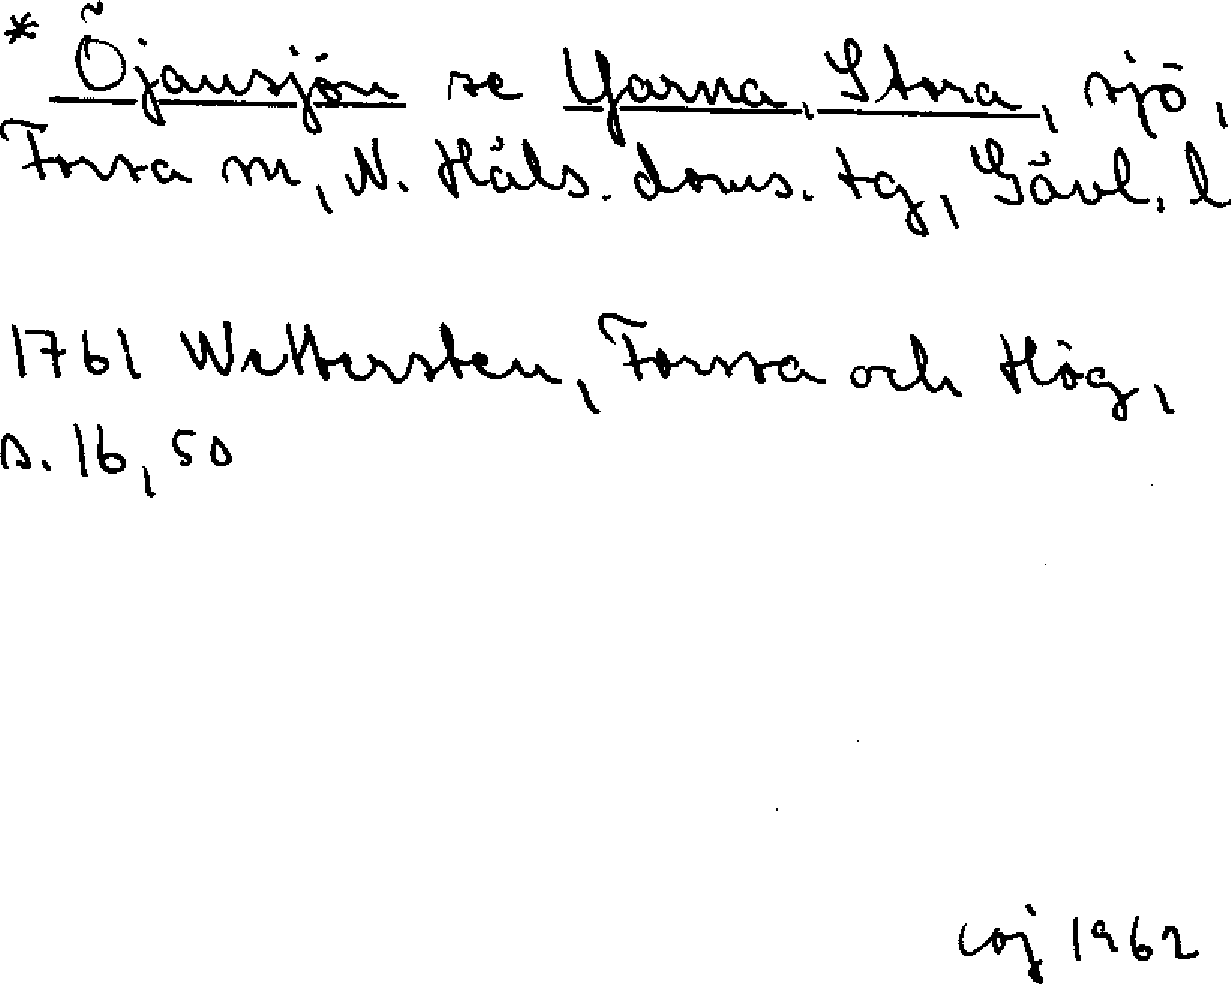 * Öjansjön se Yarna, Stora, sjö,
Forsa sn, N. Häls. doms. tg, Gävl. l
1761 Wettersten, Forssa och Hög,
s. 16, 50
coj 1962